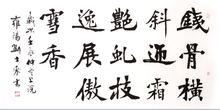 鐵骨橫
斜經霜
艷虬枝
逸展傲
雪香